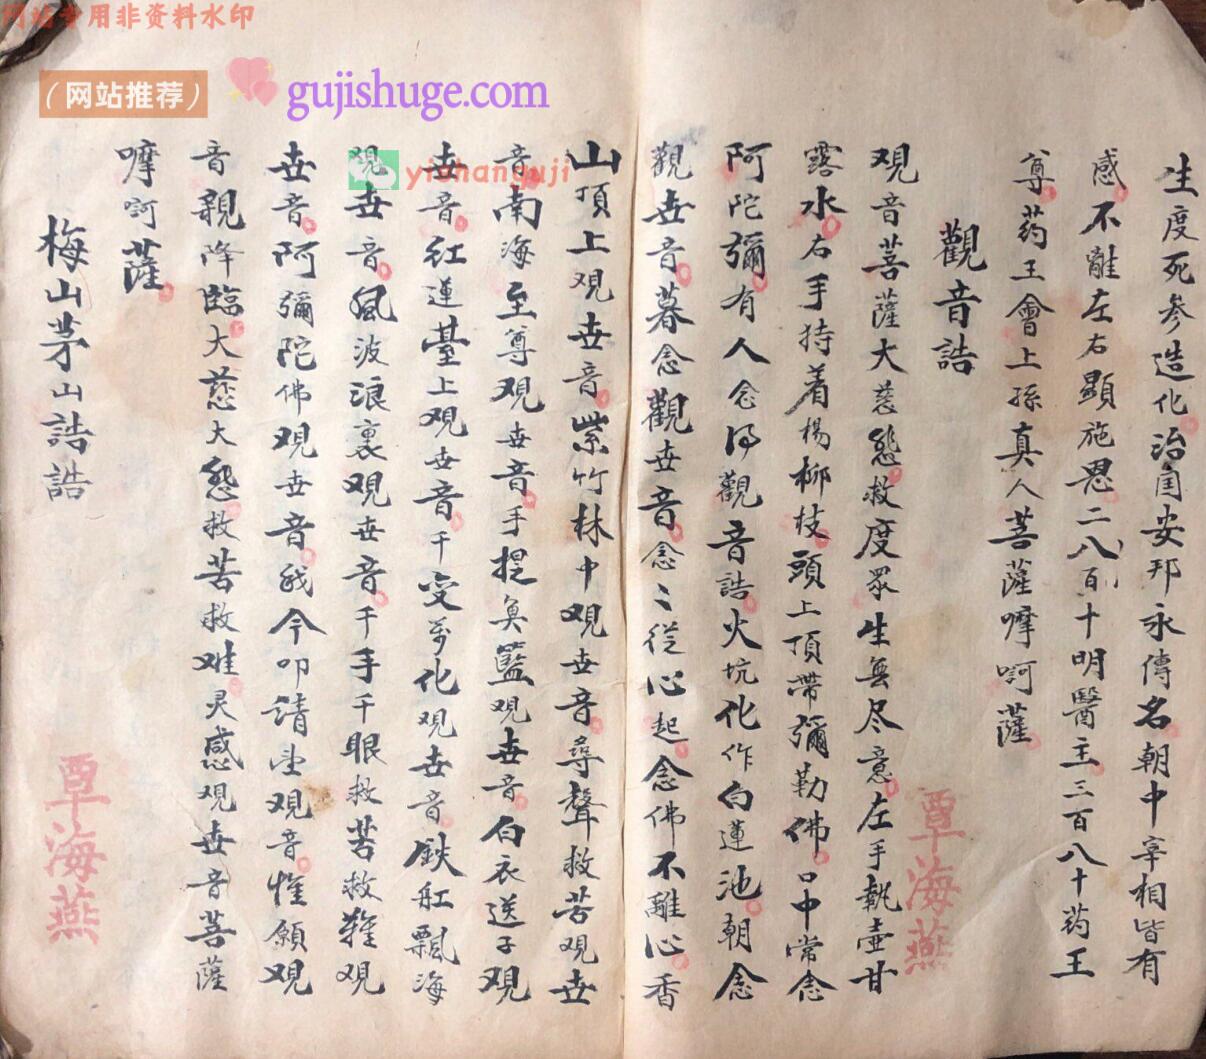 网站专用非资料水印
(网站推荐)
gujishuge.com
yishanguji
生度死参造化治国安邦永傳名朝中宰相皆有
感不離左右顯施恩二八百十明醫主三百八十药王
尊药王會上孫真人菩薩嚤呵薩
觀音誥
观音菩薩大慈悲救度眾生無尽意左手執壶甘
露水右手持着楊柳枝頭上頂帶彌勒佛口中常念
阿陀彌有人念得觀音誥火坑化作白蓮池朝念
觀世音暮念觀世音念〻從心起念佛不離心香
山頂上观世音紫竹林中观世音尋聲救苦观世
音南海至尊观世音手提魚籃观世音白衣送子观
世音红蓮臺上观世音千变萬化观世音鉄舡飄海
观世音風波浪裏观世音千手千眼救苦救難观
世音阿彌陀佛观世音我今叩請聖观音惟願观
音親降臨大慈大悲救苦救难灵感观世音菩薩
嚤訶薩
梅山茅山誥誥
覃海燕
覃海燕